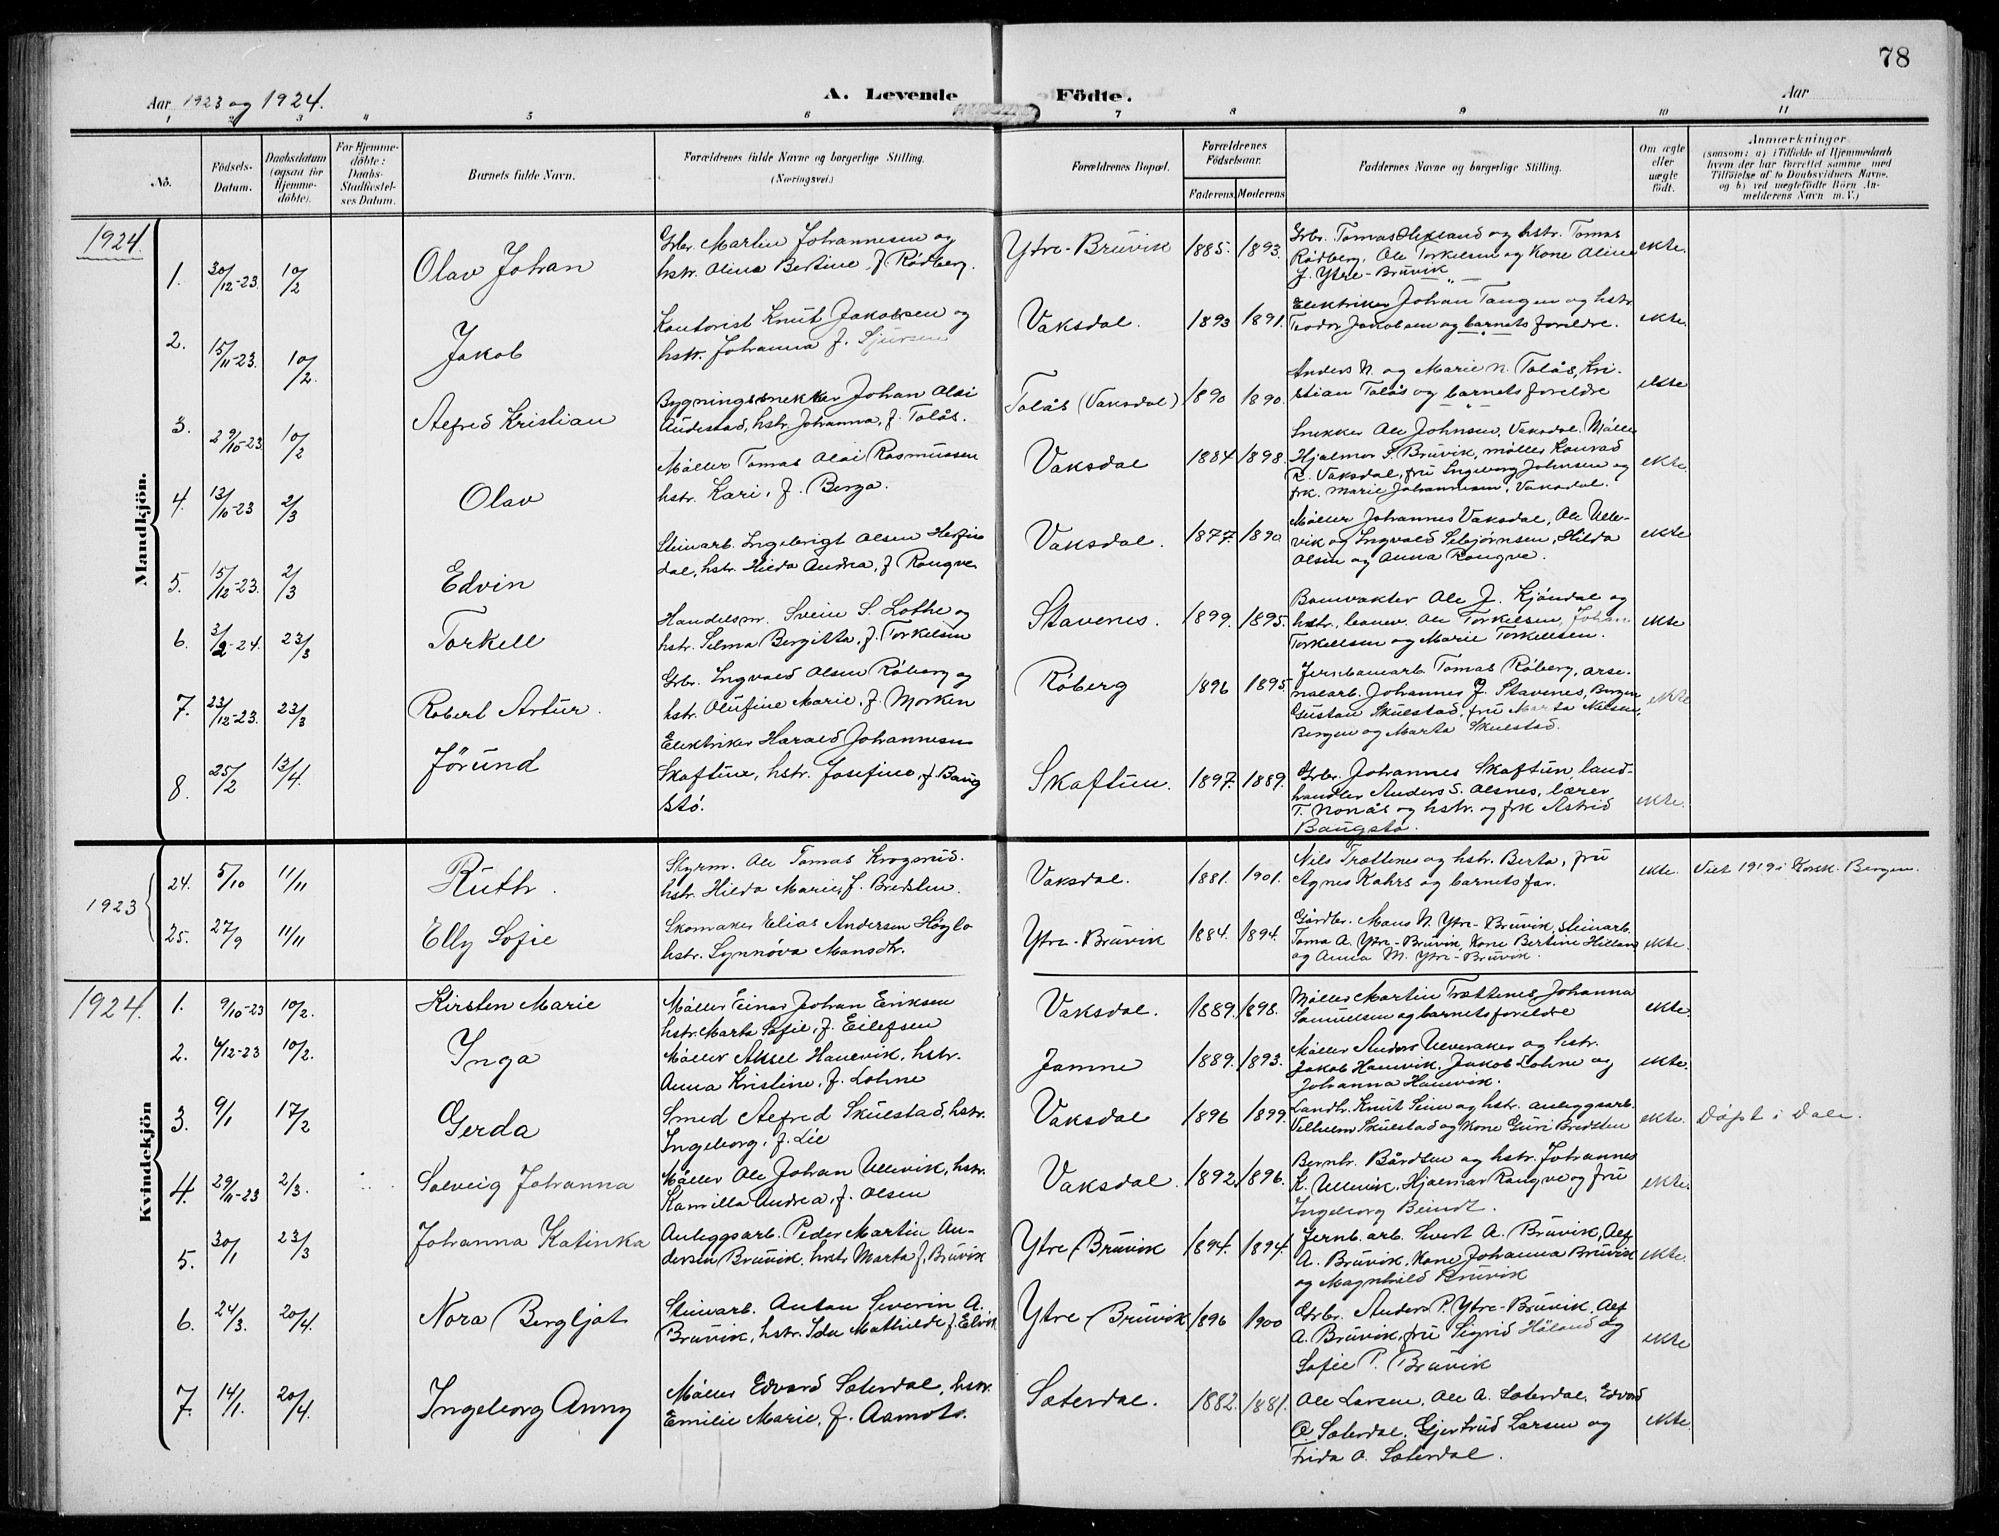 78
Aar 1923 og 1924. A. Levende Födte. Aar
1 2 3 4 5 6 7 8 9 10 11
No. Födsels-Datum. Daabsdatum (ogsaa for Hjemme-döbte). For Hjemme-döbte: Daabs-Stadfæstel-ses Datum. Barnets fulde Navn. Forældrenes fulde Navne og borgerlige Stilling. (Næringsvei.) Forældrenes Bopæl. Forældrenes Födselsaar. Faderens Moderens Faddernes Navne og borgerlige Stilling. Om ægte eller uægte födt. Anmærkninger (saasom: a) i Tilfælde af Hjemmedaab hvem der har forrettet samme med Tilföielse af to Daabsvidners Navne, og b) ved uægtefödte Börn An-melderens Navn m.V.)
Mandkjön.
1924.
1. 30/12-23. 10/2 Olav Johan Grbr. Martin Johannesen og hstr. Olina Bertine f. Rødberg. Ytre-Bruvik 1885. 1893. Grbr. Tomas Helland og hstr. Tomas Rödberg, Ole Torkelsen og Kone Aline f. Ytre-Bruvik ekte.
2. 15/11-23. 10/2. Jakob Kontorist Knut Jakobsen og hstr. Johanna f. Sjursen Vaksdal. 1893 1891. Elektriker Johan Tangen og hstr Teodor Jakobsen og barnets foreldre. ekte.
3. 29/10-23 10/2 Alfred Kristian Bygningssnekker Johan Olai Audestad, hstr. Johanna, f. Tolås. Tolås (Vaksdal) 1890 1890. Anders N. og Marie N. Tolås, Kri-stian Tolås og barnets foreldre ekte
4. 13/10-23 2/3 Olav Møller Tomas Olai Rasmussen hstr. Kari, f. Berga. Vaksdal 1884 1898. Snekker Ole Johnsen, Vaksdal. Møller Hjalmar S. Bruvik, møller Konrad R. Vaksdal, fru Ingeborg Johnsen og frk. Marie Johannesen, Vaksdal. ekte
5. 15/12-23. 2/3 Edvin Steinarb. Ingebrigt Olsen Herfin dal, hstr. Hilda Andrea, f Rongve Vaksdal. 1877. 1890 Møller Johannes Vaksdal, Ole Ulle-vik og Ingvald Sebjørnsen, Hilda Olsen og Anna Rongve. ekte
6. 3/2-24. 23/3 Torkell Handelsm. Svein S. Lothe og hstr. Selma Bergitta, f. Torkelsen Stavenes. 1899. 1895. Banevakter Ole J. Kjöndal og hstr., Ole Torkelsen, Johan Torkellsen og Marie Torkellsen. ekte
7. 23/12-23. 23/3 Robert Artur. Grbr. Ingvald Olsen Röberg og hstr. Olufine Marie, f. Morken Röberg 1896 1895. Jernbanearb Tomas Röberg, arse-nalarb. Johannes J. Stavenes, Bergen Gustav Skulestad, fru Marta Nilsen, Bergen og Marta Skulestad. ekte
8. 25/2 13/4. Jörund Elektriker Harald Johannesen Skaftun, hstr. Josefine, f. Baug stø. Skaftun. 1897. 1889. Grbr. Johannes Skaftun, land-handler Anders S. Olsnes, lærer T. Nonås og hstr. og frk Astrid Baugstø. ekte.
1923
24. 5/10 11/11 Ruth. Styrm. Ole Tomas Krogsrud. hstr. Hilda Marie, f. Bredsten. Vaksdal. 1881. 1901. Nils Trættenes og hstr. Berta, fru Agnes Kahrs og barnets far. ekte. Viet 1919 i Korsk. Bergen.
25. 27/9 11/11 Elly Sofie Skomaker Elias Andersen Höglo hstr. Synnøva Mansdtr. Ytre-Bruvik 1884. 1894. Gårdbr. Mans N. Ytre-Bruvik, steinarb. Toma A. Ytre-Bruvik, Kone Bertine Helland og Anna M. Ytre-Bruvik. ekte.
Kvindekjön
1924.
1. 9/10-23 10/2. Kirsten Marie Møller Einar Johan Eriksen hstr. Marta Sofie, f. Eilefsen Vaksdal. 1889. 1898. Møller Martin Trættenes, Johanna Samuelsen og barnets foreldre ekte.
2. 4/12-23 10/2. Inga Møller Aksel Hanevik, hstr. Anna Kristine, f. Lohne Jamne 1889. 1893. Møller Anders Ulveraker og hstr. Jakob Hanevik, Jakob Lohne og Johanna Hanevik. ekte.
3. 9/1 17/2 Gerda Smed Alfred Skulestad, hstr. Ingeborg, f. Lie Vaksdal 1896 1899. Landhr. Knut Seim og hstr. anleggsarb. Vilhelm Skulestad og Kone Guri Bredsten ekte. Døpt i Dale.
4. 29/11-23 2/3. Solveig Johanna Møller Ole Johan Ullevik, hstr. Kamilla Andrea, f. Olsen Vaksdal. 1892. 1896. Bernh. Bårdsen og hstr. Johannes K. Ullevik, Hjalmar Rongve og fru Ingeborg Beindt. ekte.
5. 30/1 23/3 Johanna Katinka Anleggsarb. Peder Martin An-dersen Bruvik, hstr. Marta f. Bruvik Ytre-Bruvik 1894. 1894. Jernb. arb. Sivert A. Bruvik, Alf A. Bruvik, Kone Johanna Bruvik og Magnhild Bruvik ekte.
6. 24/3. 20/4. Nora Bergljot Steinarb. Anton Severin A. Bruvik, hstr. Ida Mathilde f. Elvik Ytre-Bruvik 1896 1900 Grbr. Anders P. Ytre-Bruvik, Alf A. Bruvik, fru Sigrid Höland og Sofie P. Bruvik ekte
7. 14/1. 20/4. Ingeborg Anny Møller Edvard Sæterdal, hstr. Emilie Marie, f. Asmots. Sæterdal. 1882. 1881. Ole Larsen, Ole A. Sæterdal, Edvard O. Sæterdal, Gjertrud Larsen og Frida O. Sæterdal. ekte.